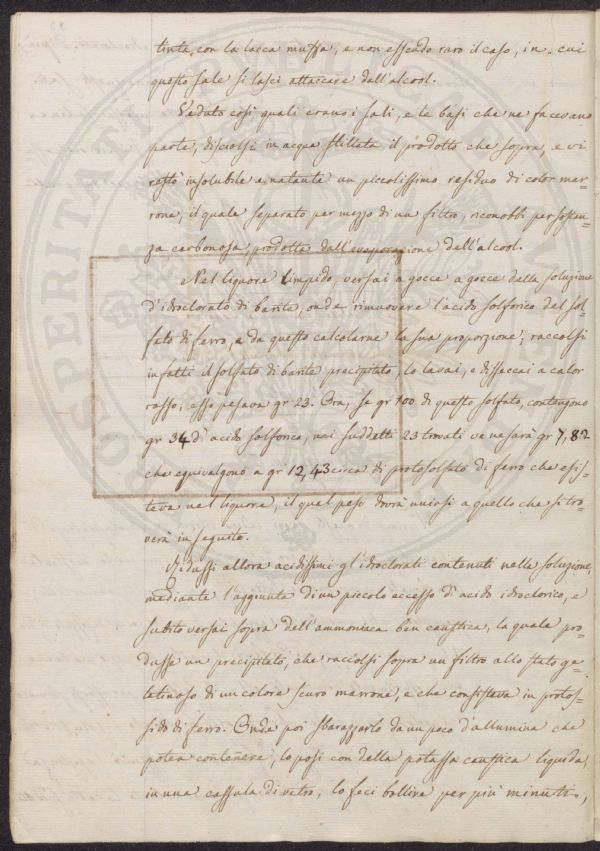 tinta, con la lacca muffa, e non essendo raro il caso, in cui
questo sale si lasci attaccare dall'alcool.
Veduto così quali erano i sali, e le basi che ne facevano
parte, disciolsi in acqua stillata il prodotto che sopra, e vi
restò insolubile e natante un piccolissimo residuo di color mar=
rone, il quale separato per mezzo di un filtro, riconobbi per sostan=
za carbonosa, prodotta dall'evaporazione dell'alcool.
Nel liquore limpido, versai a gocce a gocce della soluzione
d'idroclorato di barite, onde rimuovere l'acido solforico del sol=
fato di ferro, e da questo calcolarne la sua proporzione; raccolsi
infatti il solfato di barite precipitato, lo lavai, e disseccai a calor
rosso; esso pesava gr 23. Ora, se gr 100 di questo solfato, contengono
gr 34 d'acido solforico, nei suddetti 23 trovati ve ne sarà gr 7,82
che equivalgono a gr 12,43 circa di protosolfato di ferro che esis=
teva nel liquore, il qual peso dovrà unirsi a quello che si tro=
verà in seguito.
Ridussi allora acidissimi gl'idroclorati contenuti nella soluzione,
mediante l'aggiunta di un piccolo eccesso d'acido idroclorico, e
subito versai sopra dell'ammoniaca ben caustica, la quale pro=
dusse un precipitato, che raccolsi sopra un filtro allo stato ge=
latinoso di un colore scuro marrone, e che consisteva in protos=
sido di ferro. Onde poi sbarazzarlo da un poco d'allumina che
potea contenere, lo posi con della potassa caustica liquida,
in una cassula di vetro, lo feci bollire per più minuti,
PROSPERITATI PUBLICAE